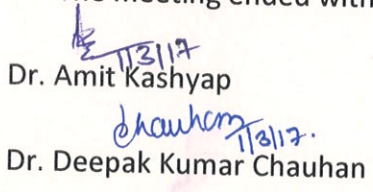 The meeting ended with
1/3/17
Dr. Amit Kashyap
Chauhan 1/3/17.
Dr. Deepak Kumar Chauhan